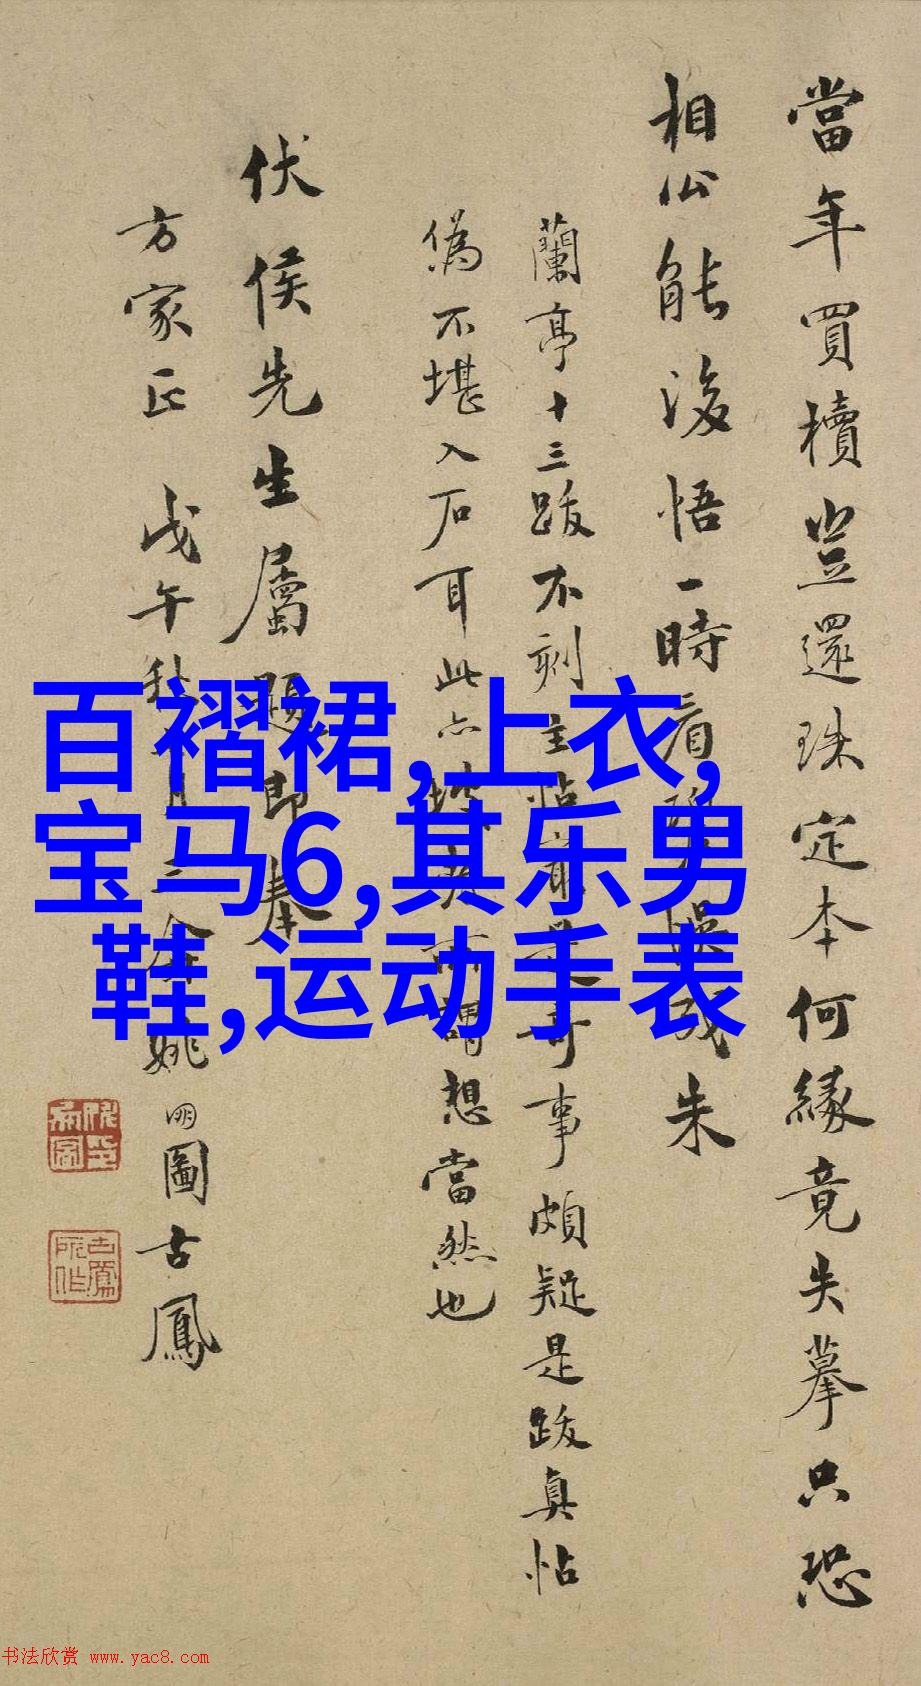 當年買櫝豈還珠定本何緣竟失摹只恐
相公能後悟一時看朱
蘭亭十三跋不刻主帖事頗疑是跋真帖
偽不堪入石耳此亦謂想當然也
伏侯先生屬題即奉
方家正 戊午秋月姚明圖古鳳
百褶裙,上衣,
宝马6,其乐男
鞋,运动手表
书法欣赏 www.yac8.com